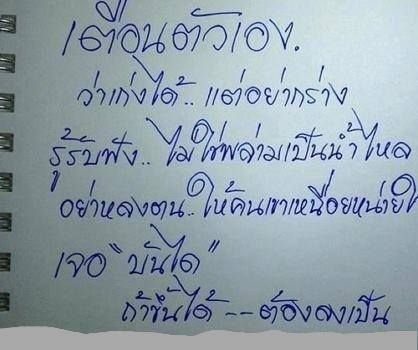 เตือนตัวเอง.
ว่าเก่งได้.. แต่อย่ากร่าง
รู้รับฟัง.. ไม่ใช่พล่ามเป็นน้ำไหล
อย่าหลงตน.. ให้คนเขาเหนื่อยหน่าย
เจอ "บันได"
ถ้าขึ้นได้ -- ต้องลงเป็น